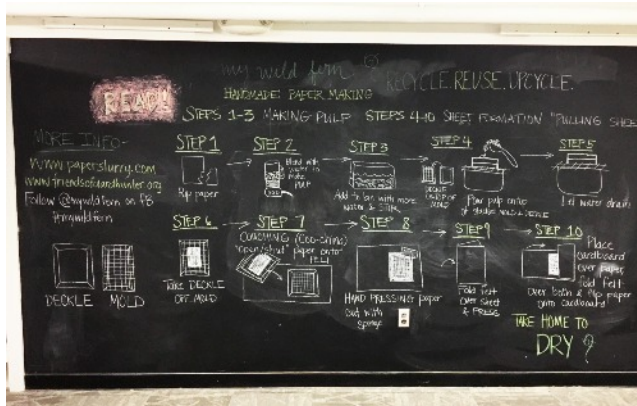 my wild fern
RECYCLE. REUSE. UPCYCLE.
READ!
HANDMADE PAPER MAKING
STEPS 1-3 MAKING PULP STEPS 4-10 SHEET FORMATION "PULLING SHEE
MORE INFO-
www.paperslurry.com
www.friendsofdardhunter.org
Follow @mywildfern on FB
#mywildfern
STEP 1
Rip paper
STEP 2
Blend with
water to
make
PULP
STEP 3
Add to bin with more
water & stir
STEP 4
DECKLE
ON TOP OF
MOLD
Pour pulp
MOLD & DECKLE
STEP 5
Let water drain
DECKLE
MOLD
STEP 6
TAKE DECKLE
OFF MOLD
STEP 7
COUCHING (Coo-ching)
"open/shut" paper onto
FELT
STEP 8
HAND PRESSING paper
Out with
Sponge
STEP 9
Fold felt
over sheet
& PRESS
STEP 10
Place
cardboard
over paper
fold felt
over both & flip paper
onto cardboard
TAKE HOME TO
DRY